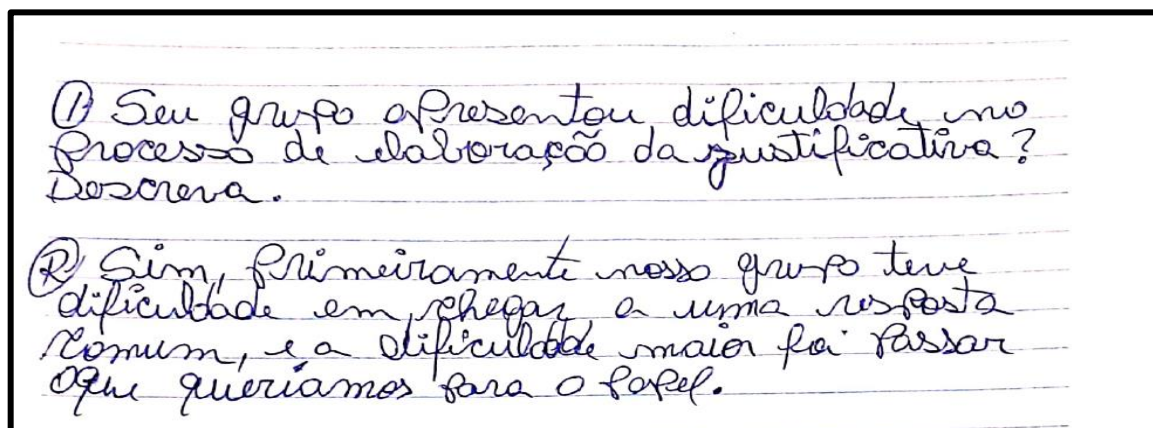 1) Seu grupo apresentou dificuldade no
processo de elaboração da justificativa?
Descreva.
R) Sim, primeiramente nosso grupo teve
dificuldade em chegar a uma resposta
comum, e a dificuldade maior foi passar
oque queríamos para o papel.